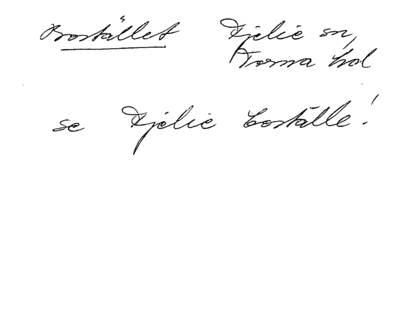 Bostället Fjelie sn,
Torna hd
se Fjelie boställe!